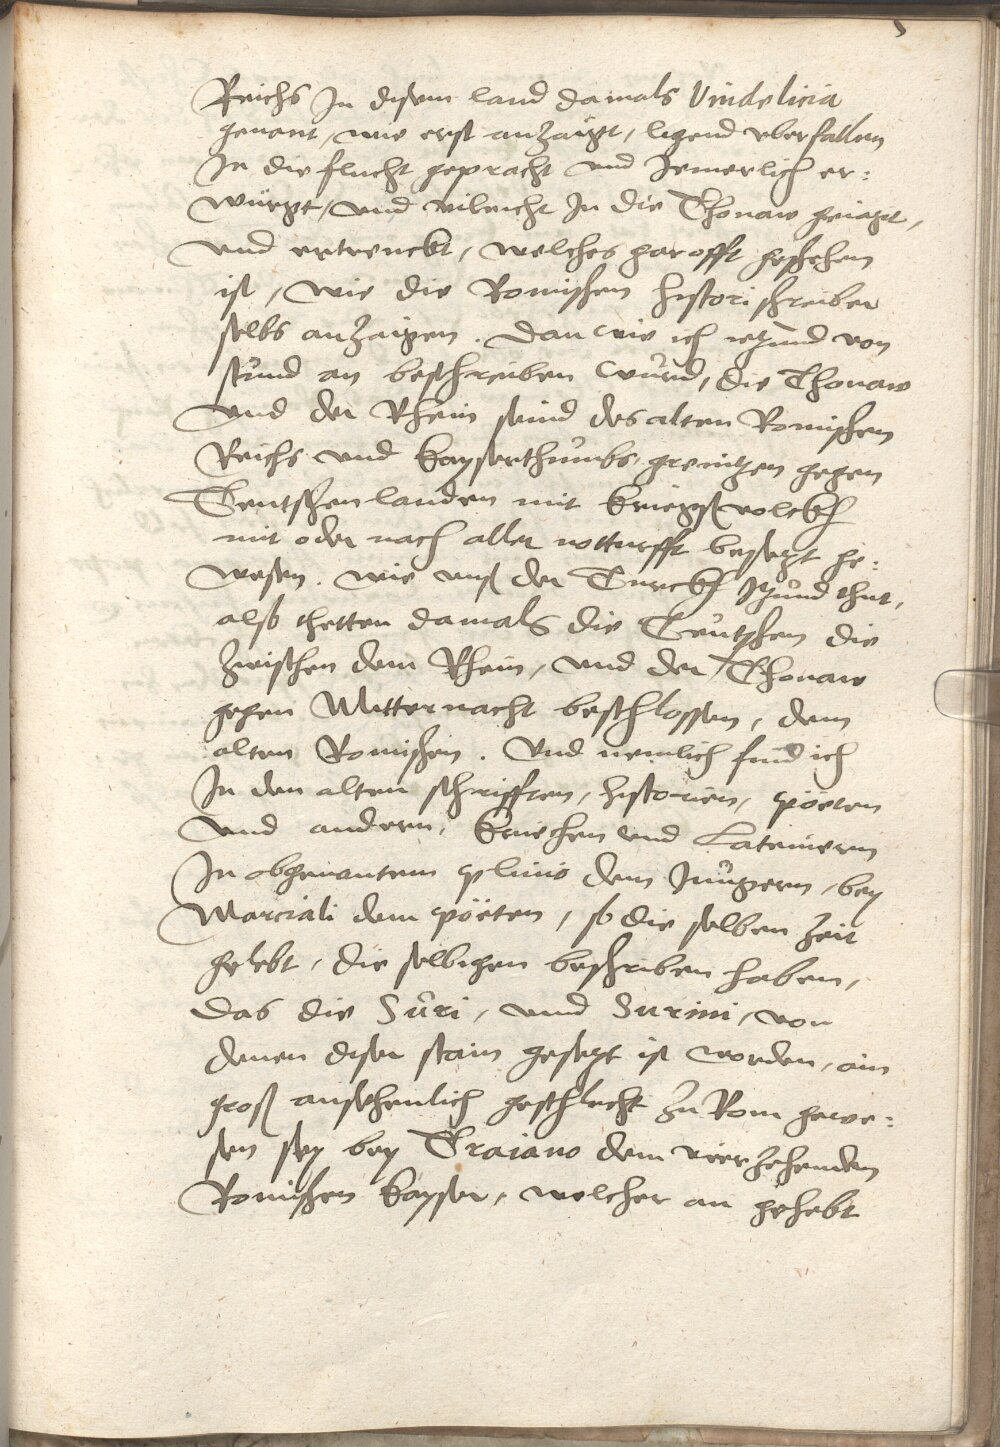 5
Reichs In disem land damals Vindelicia
genant, wie erst anzaigt, ligend vberfallen
In die flucht gepracht vnd Jemerlich er:
würgt, vnd vileicht In die Thonaw geiagt,
vnd ertrenckt, welches gar offt geschehen
ist, wie die Romischen historischreiber
selbs anzaigen. dan wie ich ietzund von
stund an beschreiben würd, die Thonaw
vnd der Rhein seind des alten Romischen
Reichs vnd kayserthumbs grenitzen gegen
Teutschen landen mit kriegßvolckh
mit oder nach aller notturfft besetzt ge:
wesen. wie vnß der Turckh Itzund thut,
alß thetten damals die Teutschen die
zwischen dem Rhein, vnd der Thonaw
gegen Mitternacht beschlossen, dem
alten Romischen. Vnd nemlich find ich
In den alten schrifften, historien, pöeten
vnd andern, kriechen vnd Lateinern
In obgenantem plinio dem Jüngern, bey
Marciali dem pöeten, so die selben zeit
gelebt, die selbigen beschriben haben,
das die Suri, vnnd Surini, von
denen diser stain gesetzt ist worden, ain
groß ansehenlich geschlecht zu Rom gewe:
sen sey bey Traiano dem vierzehenden
Romischen kayser, welcher an gehebt